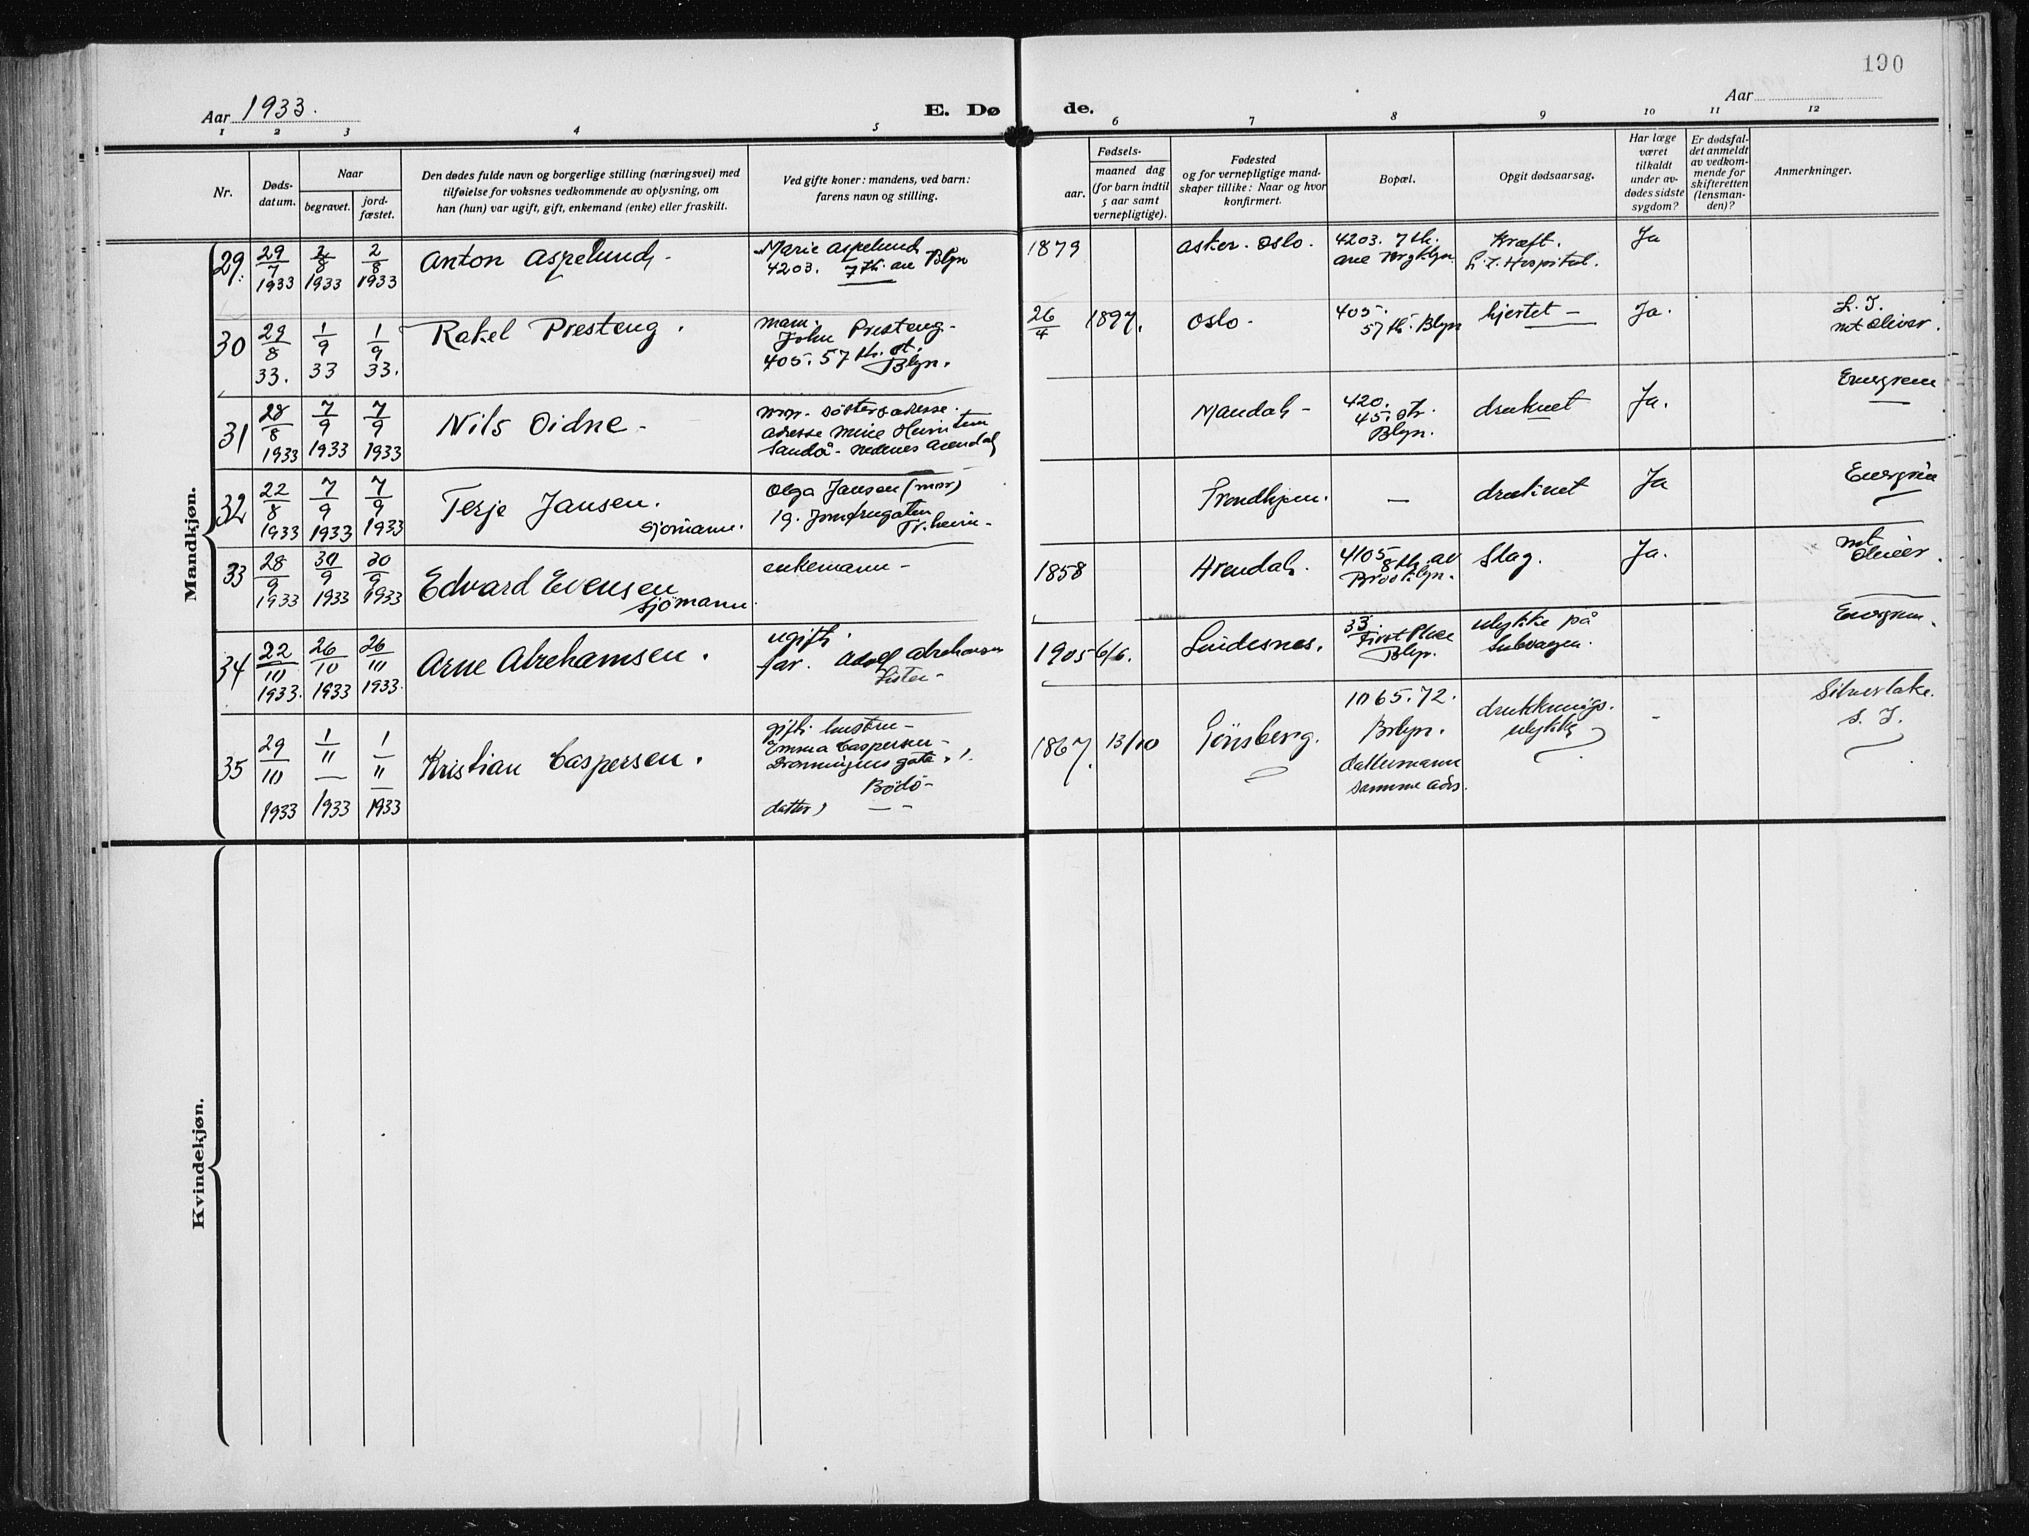 190
Aar 1933.
E. Dø de.
Aar
1 2 3 4 5 6 7 8 9 10 11 12
Nr.
Døds-
datum.
Naar
begravet.
jord-
fæstet.
Den dødes fulde navn og borgerlige stilling (næringsvei) med
tilføielse for voksnes vedkommende av oplysning, om
han (hun) var ugift, gift, enkemand (enke) eller fraskilt.
Ved gifte koner: mandens, ved barn:
farens navn og stilling.
Fødsels-
aar.
maaned dag
(for barn indtil
5 aar samt
vernepligtige).
Fødested
og for vernepligtige mand-
skaper tillike: Naar og hvor
konfirmert.
Bopæl.
Opgit dødsaarsag.
Har læge
været
tilkaldt
under av-
dødes sidste
sygdom?
Er dødsfal-
det anmeldt
av vedkom-
mende for
skifteretten
(lensman-
den)?
Anmerkninger.
Mandkjøn.
29.
29/7 1933
2/8 1933
2/8 1933
Anton Aspelund -
Marie Aspelund
4203. 7 th. ave Blyn
1879
Asker. Oslo.
4203. 7 th.
ave
Kræft.
L. I. Hospital.
Ja
30
29/8 33.
1/9 33
1/9 33.
Rakel Presteng.
mann.
John Presteng -
405. 57 th. st.
Blyn.
26/4 1897.
Oslo -
405.
57 th. Blyn
hjertet -
Ja.
L. I.
mt Oliver.
31
28/8 1933
7/9 1933
7/9 1933
Nils Oidne -
adresse
Sandå - Nedenes Arendal
Mandal -
420.
45. str.
Blyn.
druknet
Ja.
Evergreen
32
22/8 1933
7/9 1933
7/9 1933
Terje Jansen.
Sjømann.
Olga Jansen (mor)
19. Jomfrugaten
Tr.heim -
Trondhjem.
-
druknet
Ja
Evergreen
33
28/9 1933
30/9 1933
30/9 1933
Edvard Evensen
Sjømann.
enkemann -
1858
Arendal.
4105
8 th. av
Brooklyn.
Slag.
Ja.
mt
Oliver.
34
22/10 1933.
26/10 1933
26/10 1933.
Arne Abrehamsen.
ugift.
far. Adolf Abrehamsen
Lister -
1905 6/6.
Lindesnes.
33.
First Place
Blyn.
ulykke på
Subvayen.
Evergreen.
35
29/10 1933
1/11 1933
1/11 1933
Kristian Caspersen.
gift: hustru -
Emma Caspersen -
Dronningens gate
Bodö -
datter)
1867. 13/10
Tönsberg.
1065. 72.
Brlyn.
samme adrs.
druknings.
ulykke
-
Silverlake.
S. I.
Kvindekjøn.